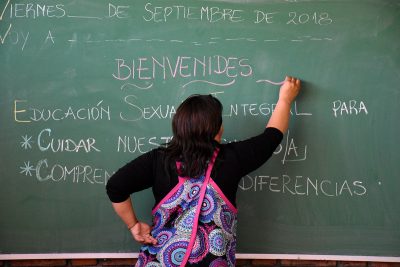 VIERNES__ DE SEPTIEMBRE DE 2018
VOY A
BIENVENIDES
EDUCACIÓN SEXUAL INTEGRAL PARA
*CUIDAR
* DIFERENCIAS